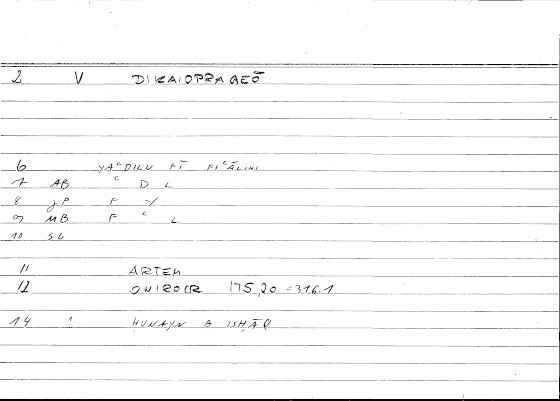 2 V DIKAIOPRAGEŌ
6 YAʿDILU FĪ FIʿĀLIHI
7 AB ʿ D L
8 JP F Y
9 MB F ʿ L
10 SG
11 ARTEM
12 ONIROCR 175,20 = 316.1
14 HUNAYN B ISHĀQ